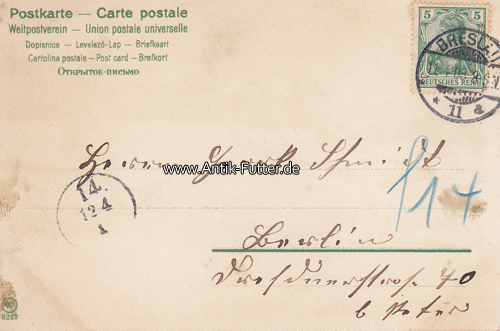 Postkarte — Carte postale
Weltpostverein — Union postale universelle
Dopisnice — Levelező-Lap — Briefkaart
Cartolina postale — Post card — Brefkort
Открытое-письмо
5 5
DEUTSCHES REICH
BRESLAU
* 11 a
Herrn Schmidt
www.Antik-Futter.de
14.
12 4
1
Berlin
Dresdnerstraße 40
b Peter
5243